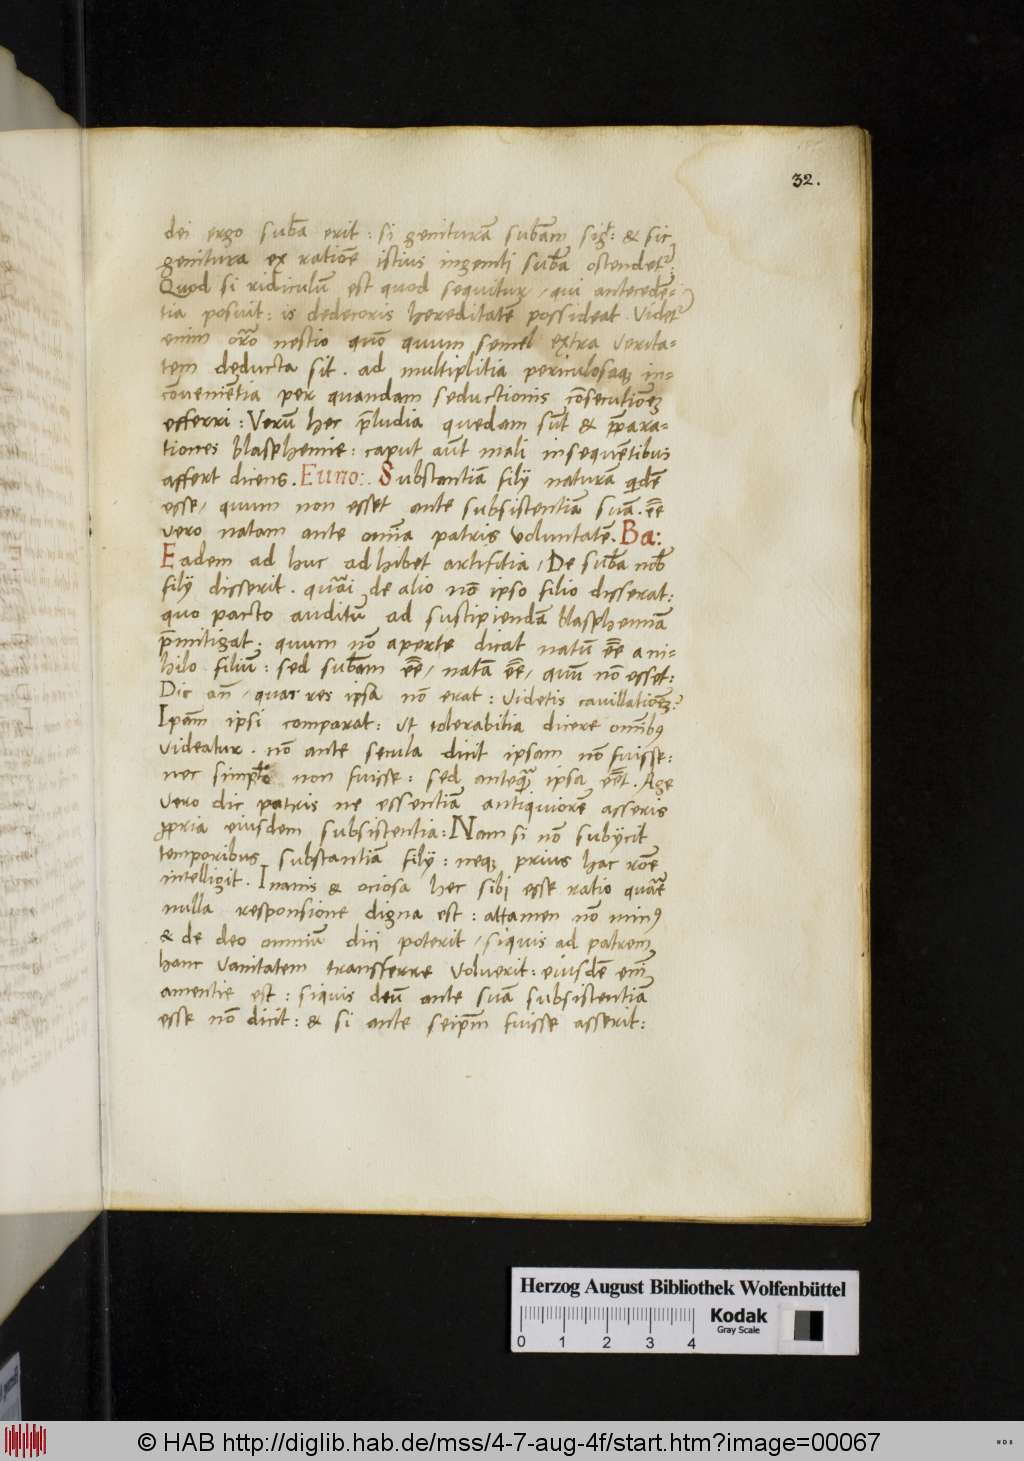 32.
dei ergo sub̄a erit : si genituram̄ sub̄am sig̃t : & sic
genitura ex ratiōe istius ingeniti sub̄a ostendet᷑
Quod si ridiculū est quod sequitur / qui antecedē=
tia posuit : is dedecoris hereditatē possideat . Videt᷑
enim or̄o nestio quō quum semel extra verita=
tem deducta sit . ad multiplitia periculosaqꝫ in=
cōveniētia per quandam seductionis cōsecutionē
efferri : Verū hec p̄ludia quedam sūt & p̄para=
tiones blasphemie : caput aūt mali insequētibus
affert dicens . Euno : . Substantiā filij naturā qdē
esse / quum non esset ante subsistentiā suā . ēē
vero natam ante omīa patris voluntatē . Ba :
Eadem ad huc adhibet artifitia / De sub̄a nob̄
filij disserit . quāi de alio nō ipso filio disserat :
quo pacto auditū ad sustipiendā blasphemiā
p̄mitigat . quum nō aperte dicat natū ēē a ni=
hilo filiū : sed sub̄am ēē / natā ēē / quū nō esset :
Dic an̄ / quae res ipsa nō erat : videtis cavillationē ?
Ip̄am ipsi comparat : ut tolerabilia dicere omībꝰ
videatur . nō ante secula dicit ipsam nō fuisse :
nec simpl̄r non fuisse : sed anteqꝫ ipsa ēēt . Age
vero dic patris ne essentiā antiquiorē asseris
ꝓpria eiusdem subsistentia : Nam si nō subijcit
temporibus substantiā filij : neqꝫ prius hac rōe
intelligit . Inanis & ociosa hec sibi esse ratio quārē
nulla responsione digna est : attamen nō minꝰ
& de deo omniū dici poterit / siquis ad patrem
hanc vanitatem transferre voluerit : eiusdē em̄
amentie est : siquis deū ante suā subsistentiā
esse nō dicit : & si ante seip̄m fuisse asserit :
Herzog August Bibliothek Wolfenbüttel
Kodak
Gray Scale
0 1 2 3 4
© HAB http://diglib.hab.de/mss/4-7-aug-4f/start.htm?image=00067